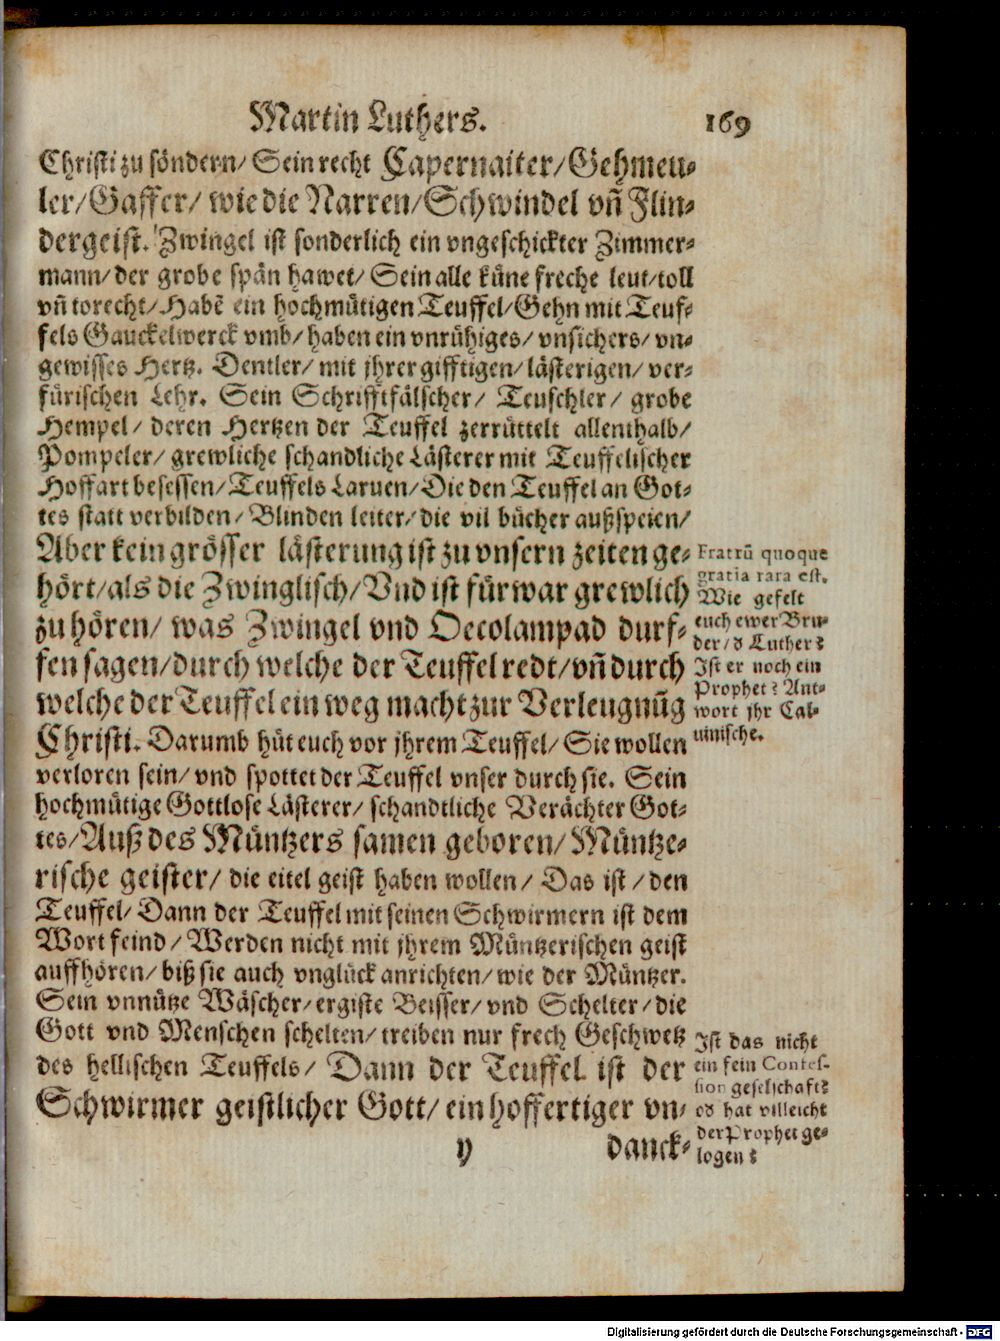 Martin Luthers. 169
Christi zu söndern/ Sein recht Capernaiter/ Gehmeu-
ler/ Gaffer/ wie die Narren/ Schwindel vñ Flin-
dergeist. Zwingel ist sonderlich ein vngeschickter Zimmer-
mann/ der grobe spän hawet/ Sein alle küne freche leut/ toll
vñ torecht/ Habē ein hochmütigen Teuffel/ Gehn mit Teuf-
fels Gauckelwerck vmb/ haben ein vnrühiges/ vnsichers/ vn-
gewisses Hertz. Dentler/ mit jhrer gifftigen/ lästerigen/ ver-
fürischen Lehr. Sein Schrifftfälscher/ Teuschler/ grobe
Hempel/ deren Hertzen der Teuffel zerrüttelt allenthalb/
Pompeler/ grewliche schandliche Lästerer mit Teuffelischer
Hoffart besessen/ Teuffels Laruen/ Die den Teuffel an Got-
tes statt verbilden/ Blinden leiter/ die vil bücher außspeien/
Aber kein grösser lästerung ist zu vnsern zeiten ge-
hört/ als die Zwinglisch/ Vnd ist fürwar grewlich
zu hören/ was Zwingel vnd Oecolampad durf-
fen sagen/ durch welche der Teuffel redt/ vñ durch
welche der Teuffel ein weg macht zur Verleugnūg
Christi. Darumb hüt euch vor jhrem Teuffel/ Sie wollen
verloren sein/ vnd spottet der Teuffel vnser durch sie. Sein
hochmütige Gottlose Lästerer/ schandtliche Verächter Got-
tes/ Auß des Müntzers samen geboren/ Müntze-
rische geister/ die eitel geist haben wollen/ Das ist/ den
Teuffel/ Dann der Teuffel mit seinen Schwirmern ist dem
Wort feind/ Werden nicht mit jhrem Müntzerischen geist
auffhören/ biß sie auch vnglück anrichten/ wie der Müntzer.
Sein vnnütze Wäscher/ ergiste Beisser/ vnd Schelter/ die
Gott vnd Menschen schelten/ treiben nur frech Geschwetz
des hellischen Teuffels/ Dann der Teuffel ist der
Schwirmer geistlicher Gott/ ein hoffertiger vn-
y danck-
Fratrū quoque
gratia rara est.
Wie gefelt
euch ewer Bru-
der/ d Luther?
Ist er noch ein
Prophet? Ant-
wort jhr Cal-
uinische.
Ist das nicht
ein fein Confes-
sion geselschaft?
od hat villeicht
der Prophet ge-
logen?
Digitalisierung gefördert durch die Deutsche Forschungsgemeinschaft - DFG